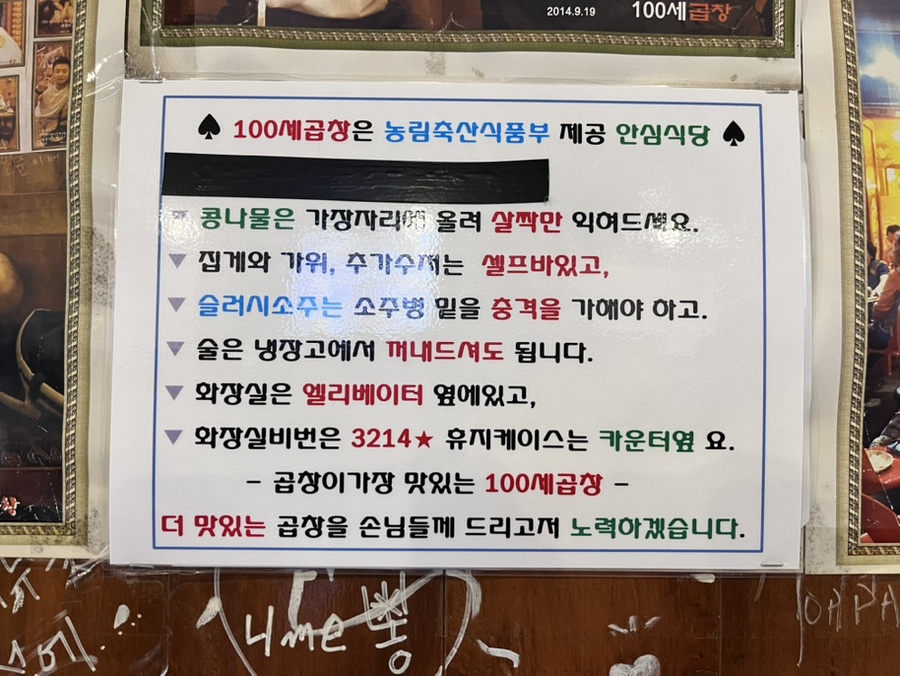 2014.9.19 100세곱창
♠ 100세곱창은 농림축산식품부 제공 안심식당 ♠
▼ 콩나물은 가장자리에 올려 살짝만 익혀드세요.
▼ 집게와 가위, 추가수저는 셀프바있고,
▼ 슬러시소주는 소주병 밑을 충격을 가해야 하고.
▼ 술은 냉장고에서 꺼내드셔도 됩니다.
▼ 화장실은 엘리베이터 옆에있고,
▼ 화장실비번은 3214★ 휴지케이스는 카운터옆 요.
- 곱창이가장 맛있는 100세곱창 -
더 맛있는 곱창을 손님들께 드리고저 노력하겠습니다.